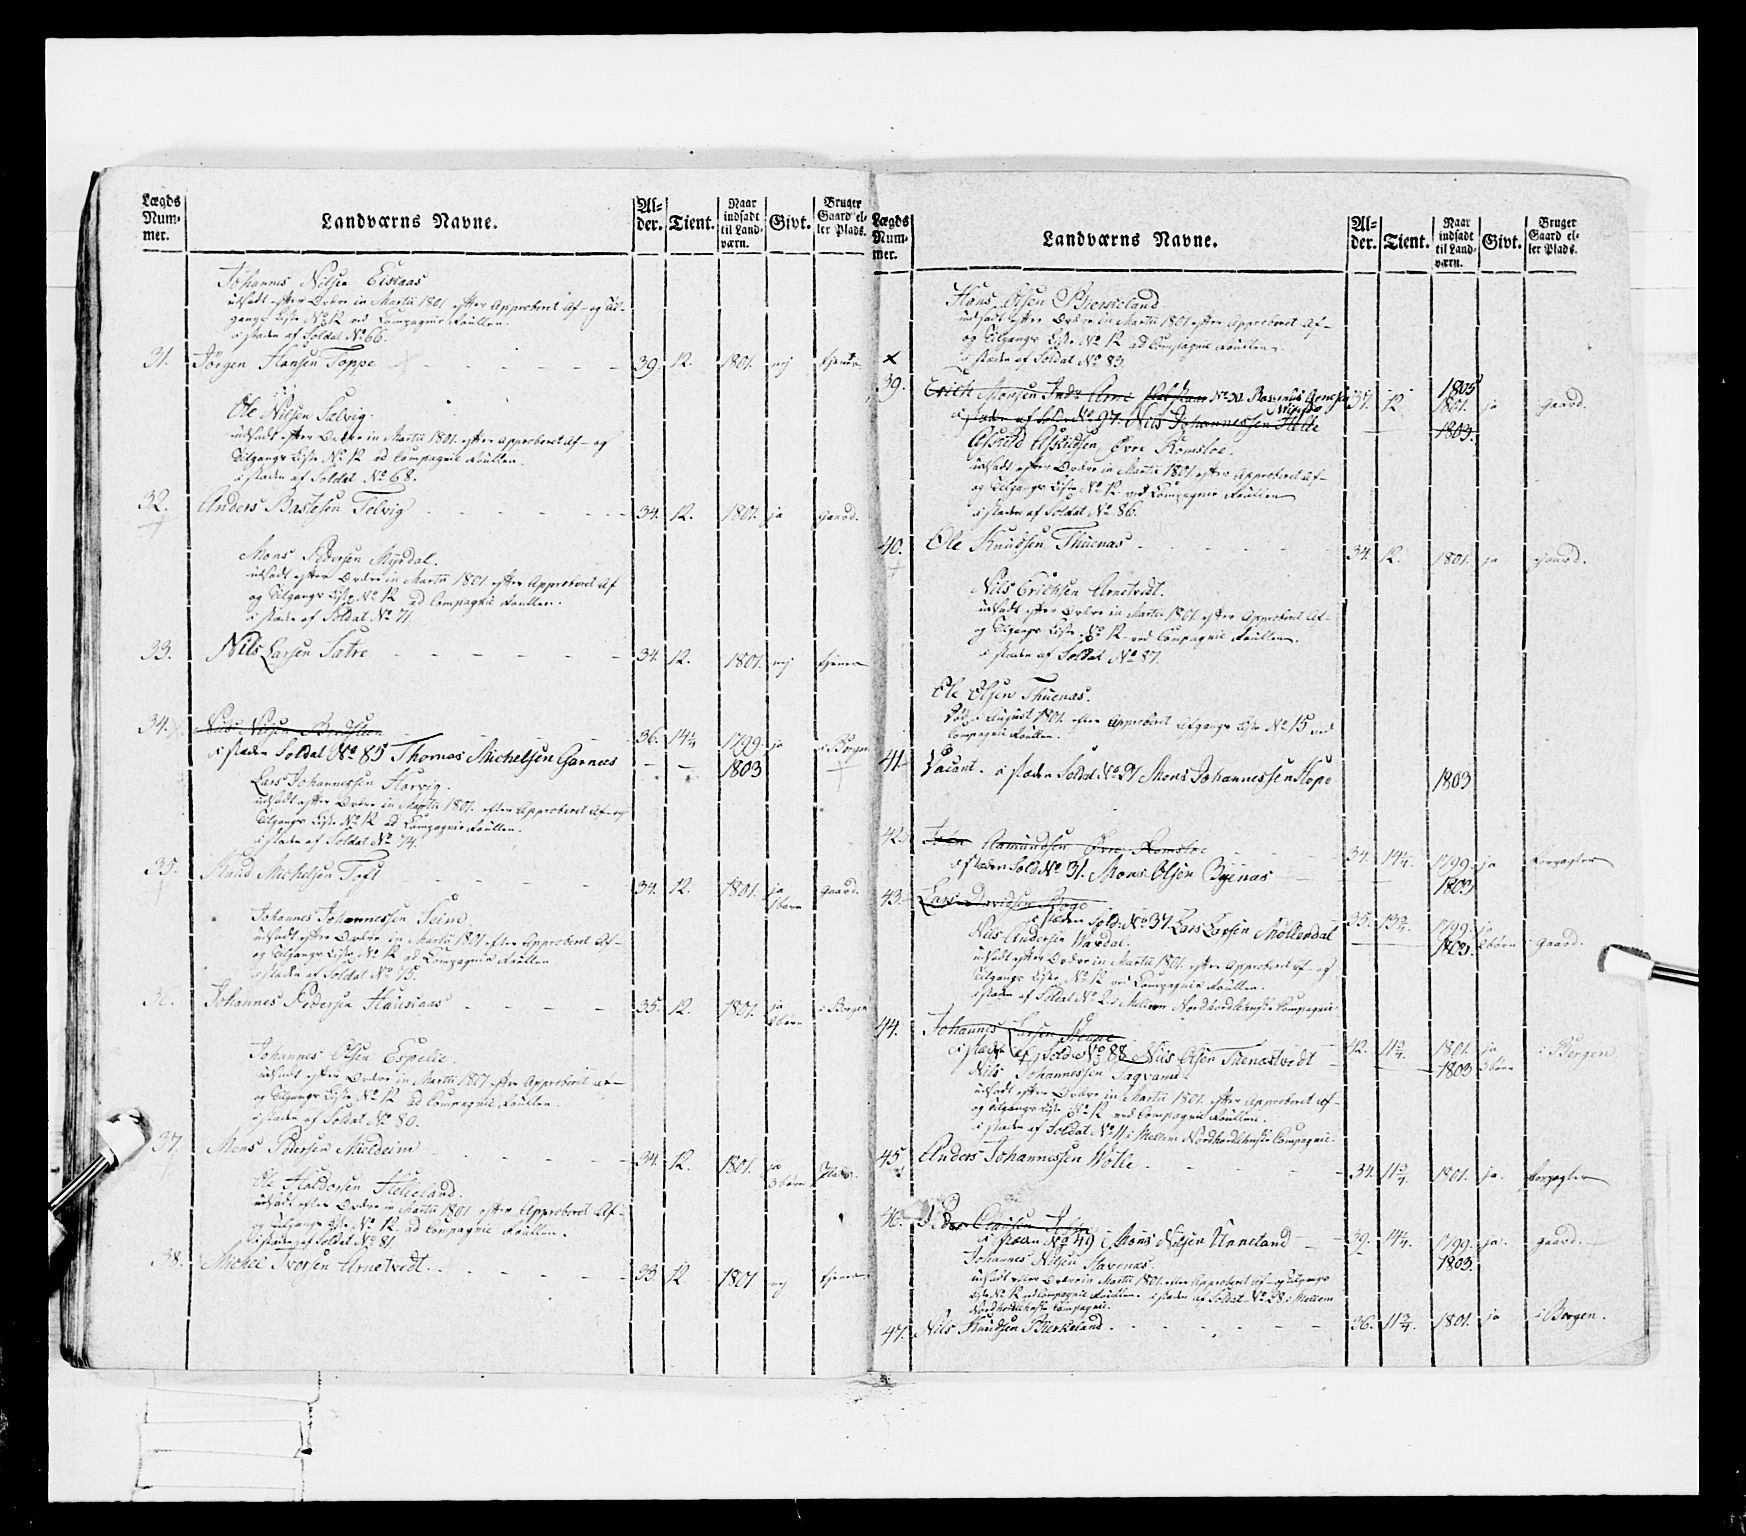 Lægds
Num-
mer.
Landværns Navne.
Al-
der.
Tient.
Naar
indsadt
til Land-
værn.
Givt.
Bruger
Gaard el-
ler Plads.
Johannes Nilsen
udsadt efter Ordre in Martii 1801 efter Approberet Af- og Til-
gangs Liste No 12 ved Compagnie Rullen.
i stæden af Soldat No 66.
31. Jörgen Hansen Toppe 39. 12. 1801. nej tjener
Ole Nilsen Sælvig.
udsadt efter Ordre in Martii 1801. efter Approberet Af- og
Tilgangs Liste No 12 ad Compagnie Rullen.
i stæden af Soldat No 68.
32. Anders Bastesen Telvig 34. 12. 1801. ja gaard.
Mons Pedersen Myrdal.
udsadt efter Ordre in Martii 1801 efter Approberet Af
og Tilgangs Liste No 12 ad Compagnie Rullen.
i stæden af Soldat No 71.
33. Nils Larsen Sætre 34. 12. 1801. nej tjener
34. Nils Nilsen 36. 14 1/4 1799. ja i Bergen
i stæden Soldat No 85 Thomas Michelsen Garnees 1803
Lars Johannessen Horvig.
udsadt efter Ordre in Martii 1801. efter Approberet Af- og
Tilgangs Liste No 12 ad Compagnie Rullen.
i stæden af Soldat No 74.
35. Knud Michelsen Toft 34. 12. 1801. ja gaard.
Johannes Johannessen Seim.
udsadt efter Ordre in Martii 1801 efter Approberet Af-
og Tilgangs Liste No 12 ad Compagnie Rullen
i stæden af Soldat No 75.
36. Johannes Pedersen Haukaas 35. 12. 1801. ja i Bergen
Johannes Olsen Espelie.
udsadt efter Ordre in Martii 1801 efter Approberet af-
og Tilgangs Liste No 12 ad Compagnie Rullen.
i stæden af Soldat No 80.
37. Mons Pedersen Mieldeim 34. 12. 1801. ja 3 børn Plads.
Ole Haldorsen Helleland.
udsadt efter Ordre in Martii 1801 efter Approberet Af-
og Tilgangs Liste No 12. ad Compagnie Rullen.
i stæden af Soldat No 81.
38. Michel Iversen Arnetvedt. 33. 12 1801 nej tjener
Lægds
Num-
mer.
Landværns Navne.
Al-
der.
Tient.
Naar
indsadt
til Land-
værn.
Givt.
Bruger
Gaard el-
ler Plads.
Hans Olsen Biørkeland
udsadt efter Ordre in Martii 1801 efter Approberet Af-
og Tilgangs Liste No 12 ad Compagnie Rullen.
i stæden af Soldat No 83.
1805
39. Erich Monsen Indre Arne 37. 12 1801. ja gaard.
i stæden af Sold. No 97. Nils Johannessen Helle 1803.
Askild Askildsen Øvre Romsloe.
udsadt efter Ordre in Martii 1801 efter Approberet Af-
og Tilgangs Liste No 12 ved Compagnie Rullen
i stæden af Soldat No 86.
40. Ole Knudsen Thuenæs 34. 12. 1801. ja gaard.
Nils Erichsen Arnetvedt.
udsadt efter Ordre in Martii 1801. efter Approberet Af-
og Tilgangs Liste No 12 ved Compagnie Rullen.
i stæden af Soldat No 87.
Ole Olsen Thuenæs.
Død i August 1801. efter Approberet Afgangs Liste No 15 ved
Compagnie Rullen.
41. Vacant. i stæden Soldat No 21 Mons Johannessen Hope 1803
42. Amundsen Øvre Romsloe 34. 14 1/4. 1799. ja forpagter
i stæden Sold No 31. Mons Olsen Byenæs 1803
43. Lars Davidsen 35. 13 3/4. 1799. ja 2 børn gaard.
i stæden Sold. No 37 Lars Larsen Møllendal 1803.
Nils Andersen Wardal.
udsadt efter Ordre in Martii 1801. efter Approberet af- og
Tilgangs Liste No 12 ved Compagnie Rullen.
i stæden af Soldat No 2 i Mellem Nordhordlehnske Compagnie
44. Johannes Larsen 42. 11 3/4. 1801. ja 3 børn i Bergen
i stæden af Sold. No 88 Nils Olsen Tuenæstvedt 1803
Nils Johannessen
udsadt efter Ordre in Martii 1801. efter Approberet Af-
og Tilgangs Liste No 12 ved Compagnie Rullen.
i stæden af Soldat No 11 i Mellem Nordhordlehnske Compagnie.
45 Anders Johannessen Wolle 34. 11 3/4. 1801. ja. forpagter
46. Peder Clausen 39. 14 1/4. 1799. ja. gaard.
i stæden No 49 Mons Nilsen Unneland 1803.
Johannes Nilsen Havenæs
udsadt efter Ordre in Martii 1801. efter Approberet Af- og Tilgangs
Liste No 12 ved Compagnie Rullen. i stæden af Soldat No 28 i Mellem
Nordhordlehnske Compagnie.
47. Nils Knudsen Bierkeland 36. 11 3/4. 1801. ja i Bergen.